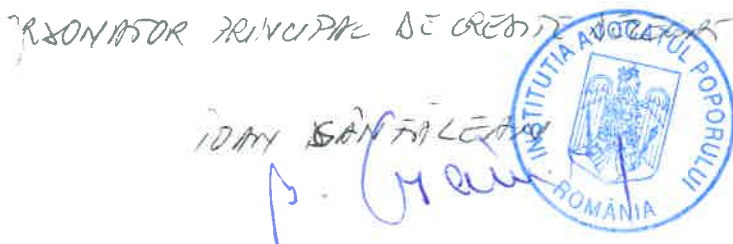 ORDONATOR PRINCIPAL DE CREDITE
IOAN GÂNFĂLEAN
INSTITUȚIA AVOCATUL POPORULUI
ROMÂNIA